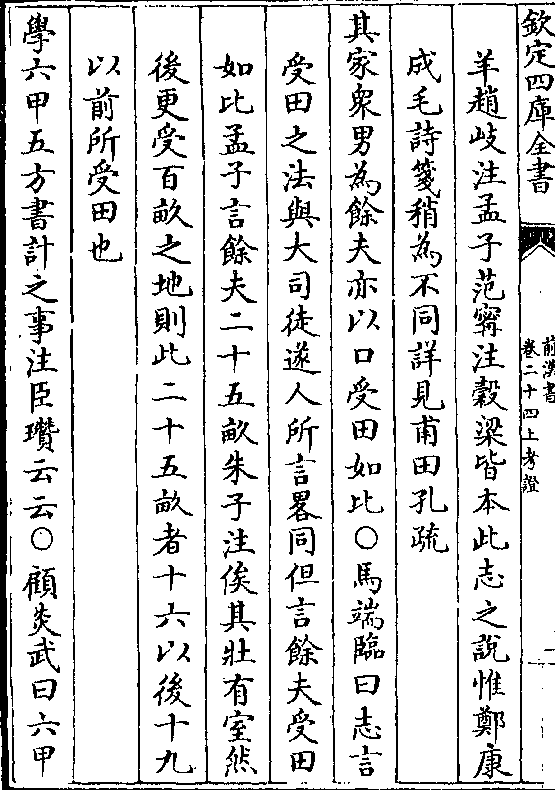 欽定四庫全書
前漢書
卷二十四上考證
羊趙岐注孟子范甯注穀梁皆本此志之說惟鄭康
成毛詩箋稍為不同詳見甫田孔疏
其家衆男為餘夫亦以口受田如比○馬端臨曰志言
受田之法與大司徒遂人所言畧同但言餘夫受田
如比孟子言餘夫二十五畝朱子注俟其壯有室然
後更受百畝之地則此二十五畝者十六以後十九
以前所受田也
學六甲五方書計之事注臣瓚云云○顧炎武曰六甲